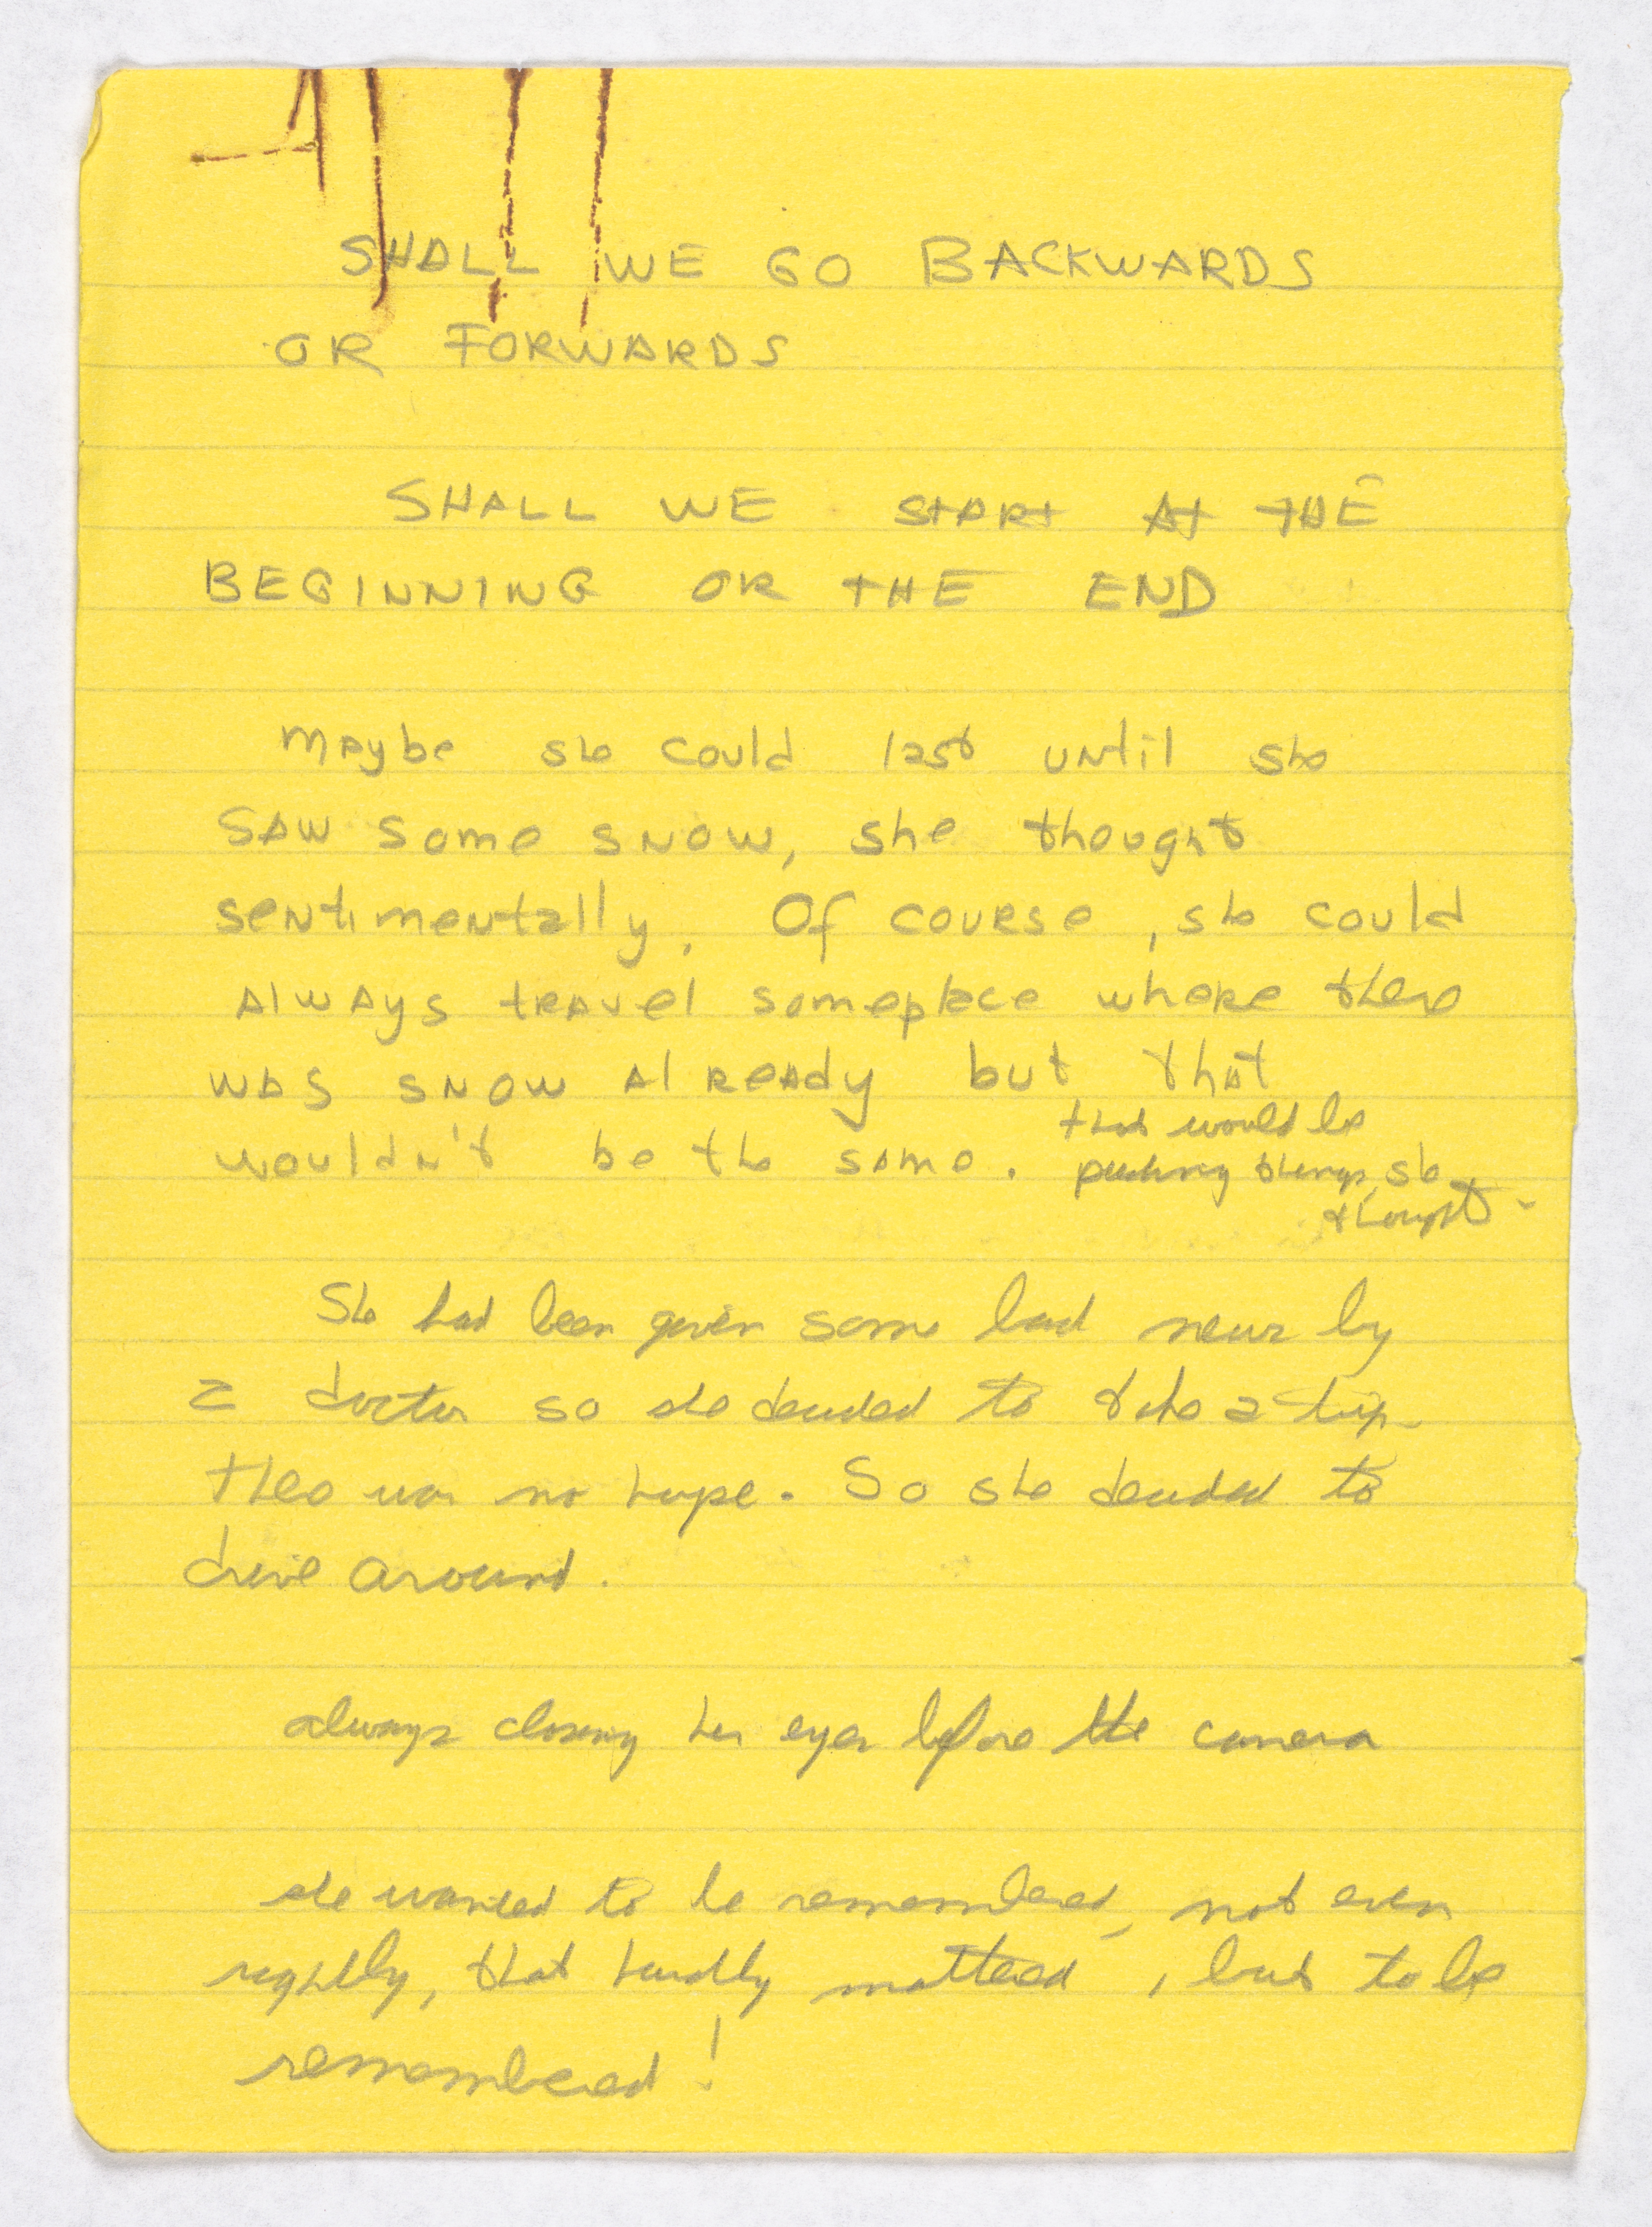 SHALL WE GO BACKWARDS
OR FORWARDS
SHALL WE START AT THE
BEGINNING OR THE END
maybe she could last until she
saw some snow, she thought
sentimentally. Of course, she could
always travel someplace where there
was snow already but that
wouldn't be the same. that would be
pushing things, she
thought.
She had been given some bad news by
a doctor so she decided to take a trip.
There was no hope. So she decided to
drive around.
always closing her eyes before the camera
she wanted to be remembered, not even
rightly, that hardly mattered, but to be
remembered!